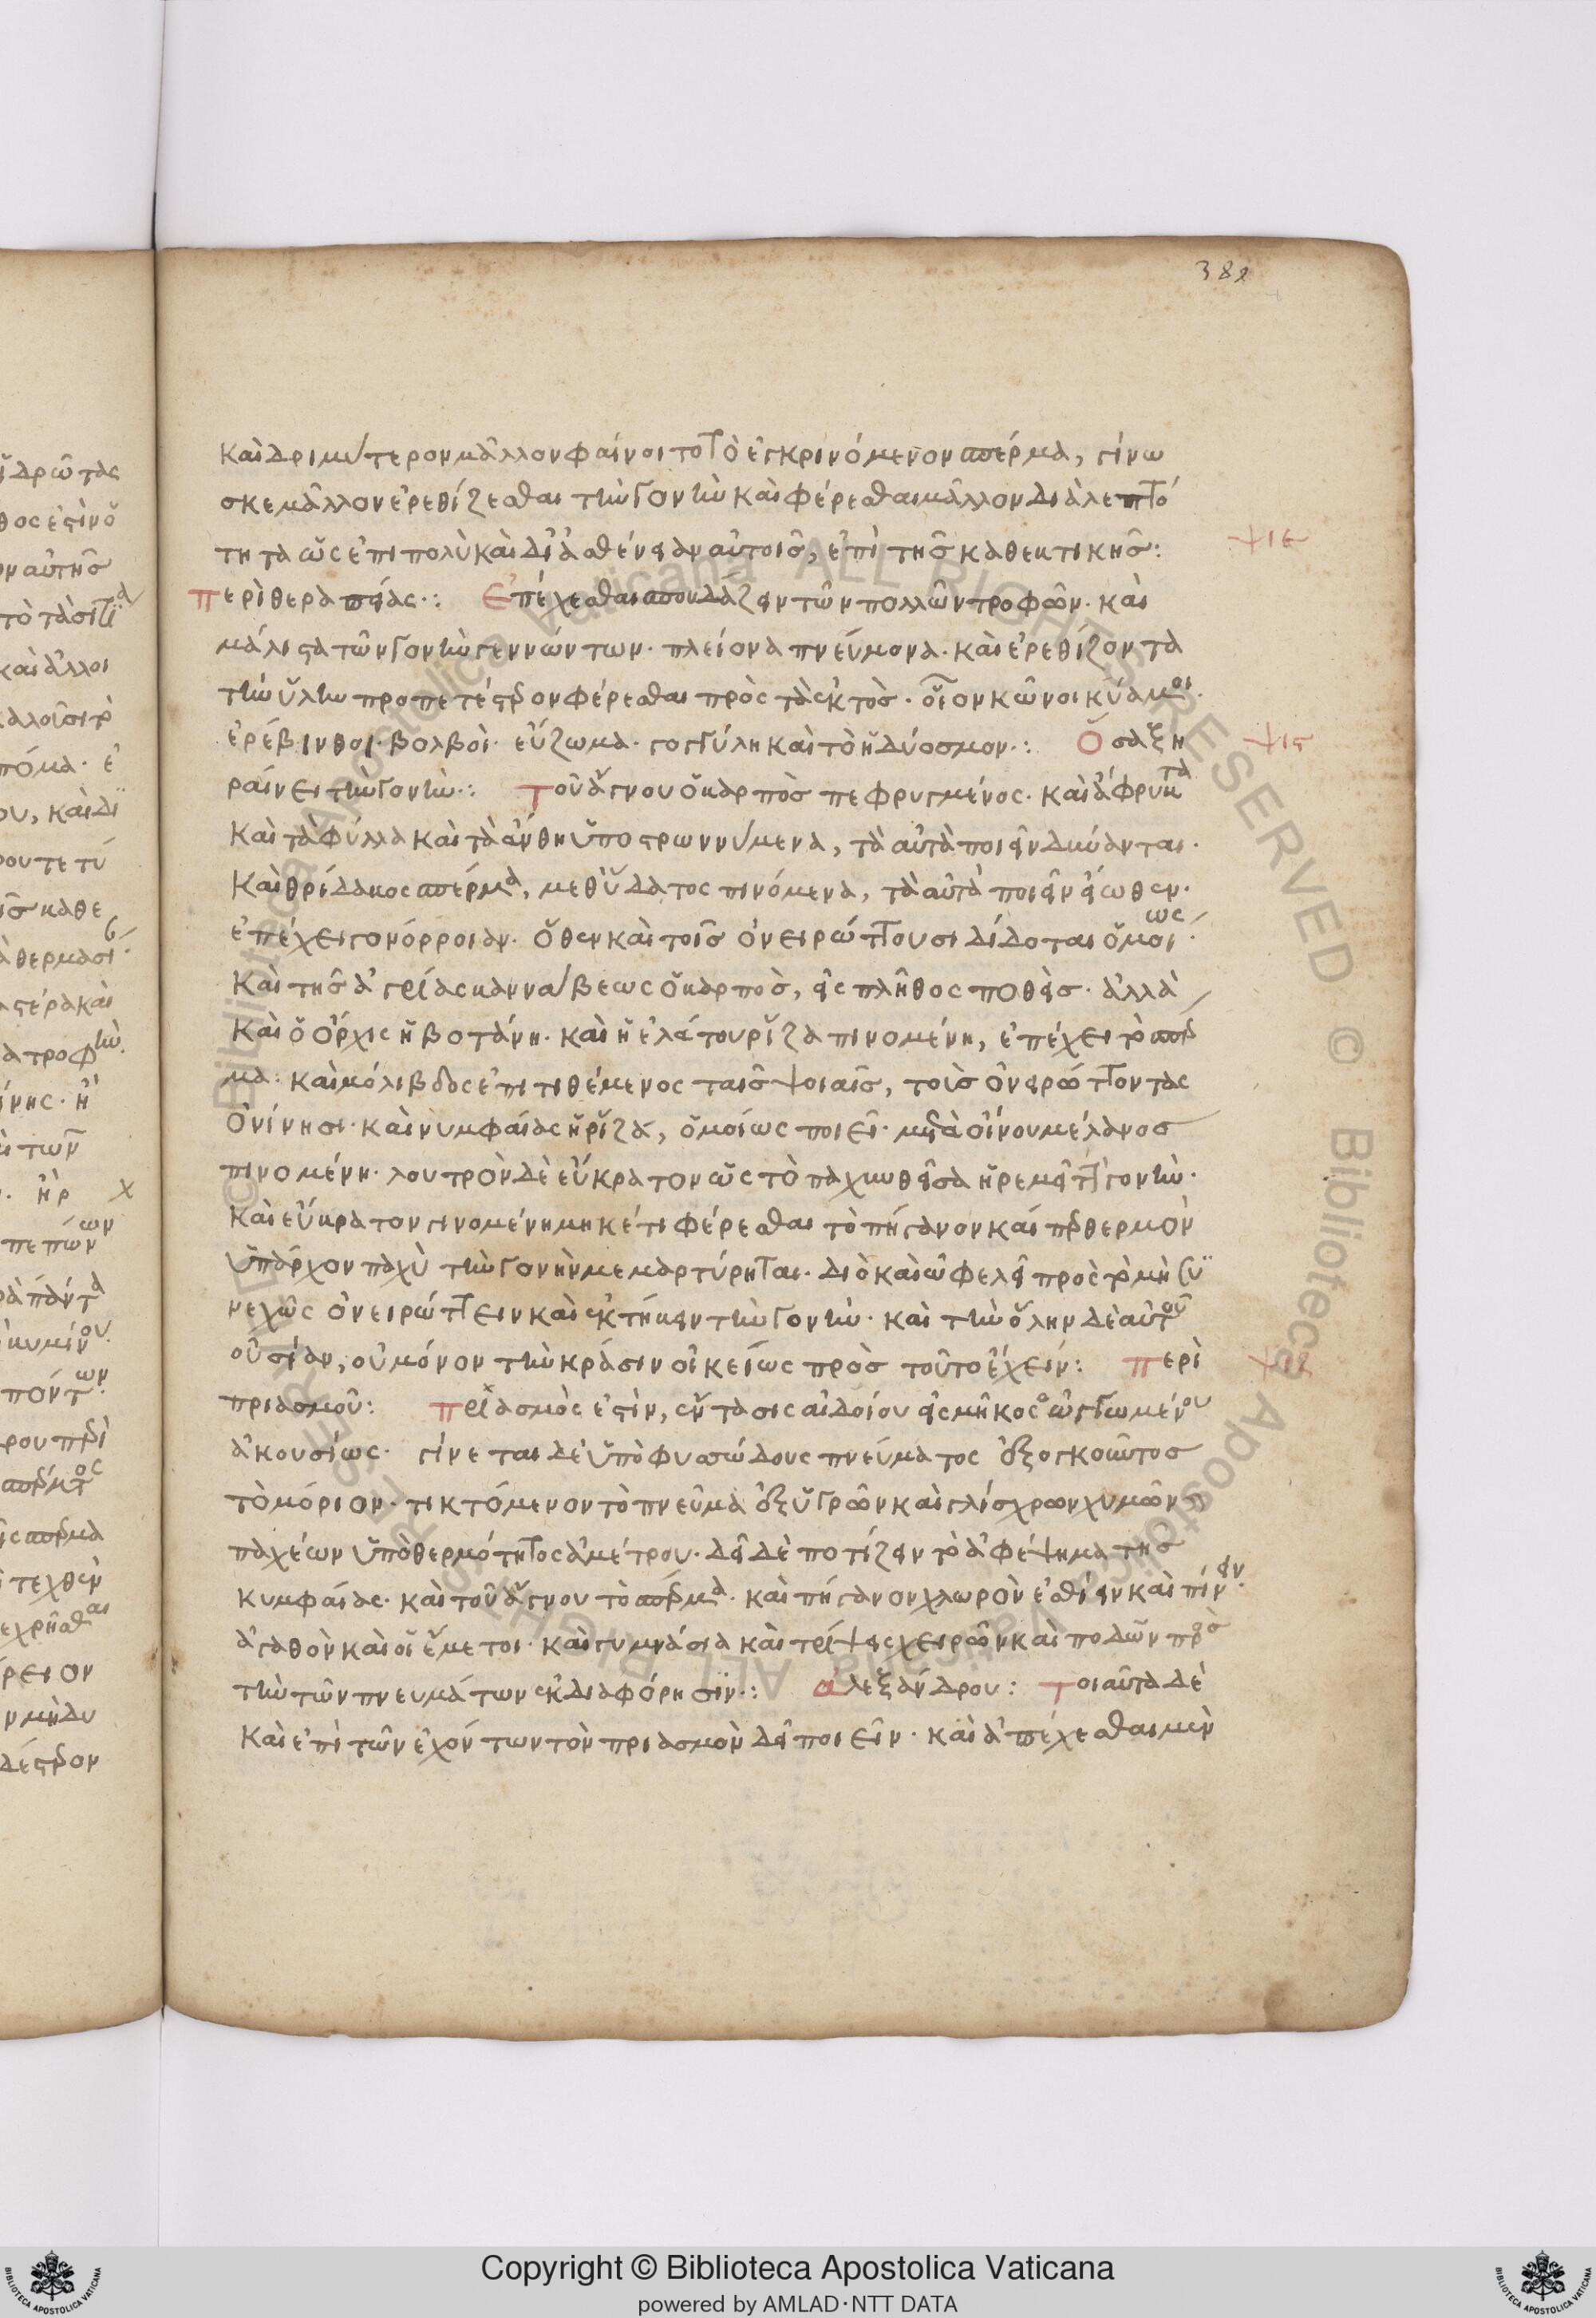 382
καὶ δριμύτερον μᾶλλον φαίνοιτο τὸ ἐκκρινόμενον σπέρμα, γίνω
σκε μᾶλλον ἐρεθίζεσθαι τὴν γονὴν καὶ φέρεσθαι μᾶλλον διὰ λεπτό
τητα ὡς ἐπιπολὺ καὶ δι' ἀσθένειαν αὐτοῖς, ἐπὶ τῆς καθεκτικῆς: ψιε
περὶ θεραπείας·: Ἐπέχεσθαι σπουδάζειν τῶν πολλῶν τροφῶν· καὶ
μάλιστα τῶν γονὴν γεννώντων· πλείονα πνεύμονα· καὶ ἐρεθίζοντα
τὴν ὕλην προπετέστερον φέρεσθαι πρὸς τὰ ἐκτὸς· οἷον κῶνοι κύαμοι.
ἐρέβινθοι· βολβοὶ· εὔζωμα· γογγύλη καὶ τὸ ἡδύοσμον·: Ὅσα ξη ψιϛ
ραίνει τὴν γονὴν·: Τοῦ ἄγνου ὁ καρπὸς πεφρυγμένος· καὶ ἄφρυκτα
καὶ τὰ φύλλα καὶ τὰ ἄνθη ὑποστρωννύμενα, τὰ αὐτὰ ποιεῖν δύνανται·
καὶ θρίδακος σπέρμα, μεθ' ὕδατος πινόμενα, τὰ αὐτὰ ποιεῖν εἴωθεν·
ἐπέχει γονόρροιαν· ὅθεν καὶ τοῖς ὀνειρώττουσι δίδοται ὁμοίως·
καὶ τῆς ἀγρίας καννάβεως ὁ καρπὸς, εἰς πλῆθος ποθεὶς· ἀλλὰ
καὶ ὁ ὄρχις ἡ βοτάνη· καὶ ἡ ἐλάτου ῥίζα πινομένη, ἐπέχει τὸ σπέρ
μα· καὶ μόλιβδος ἐπιτιθέμενος ταῖς ψοιαῖς, τοὺς ὀνειρώττοντας
ὀνίνησι· καὶ νυμφαίας ἡ ῥίζα, ὁμοίως ποιεῖ· μετὰ οἴνου μέλανος
πινομένη· λουτρὸν δὲ εὔκρατον ὡς τὸ παχυνθεῖσα ἠρεμεῖ τὴν γονὴν·
καὶ εὔκρατον γινομένη μηκέτι φέρεσθαι τὸ πήγανον καίπερ θερμὸν
ὑπάρχον παχὺ τὴν γονὴν μεμαρτύρηται· διὸ καὶ ὠφελεῖ πρὸς τὸ μὴ συ
νεχῶς ὀνειρώττειν καὶ ἐκτήκειν τὴν γονὴν· καὶ τὴν ὅλην δὲ αὐτοῦ
οὐσίαν, οὐ μόνον τὴν κράσιν οἰκείως πρὸς τοῦτο ἔχειν: Περὶ ψιζ
πριασμοῦ: Πριασμὸς ἐστὶν, ἔντασις αἰδοίου εἰς μῆκος ὠγκωμένου
ἀκουσίως· γίνεται δὲ ὑπὸ φυσώδους πνεύματος ἐξογκοῦντος
τὸ μόριον· τικτόμενον τὸ πνεῦμα ἐξ ὑγρῶν καὶ γλίσχρων χυμῶν
παχέων ὑπὸ θερμότητος ἀμέτρου· δεῖ δὲ ποτίζειν τὸ ἀφέψημα τῆς
κυμφαίας· καὶ τοῦ ἄγνου τὸ σπέρμα· καὶ πήγανον χλωρὸν ἐσθίειν καὶ πίνειν·
ἀγαθὸν καὶ οἱ ἔμετοι· καὶ γυμνάσια καὶ τρίψεις χειρῶν καὶ ποδῶν πρὸς
τὴν τῶν πνευμάτων ἐκδιαφόρησιν·: Ἀλεξάνδρου: Τοιαῦτα δὲ
καὶ ἐπὶ τῶν ἐχόντων τὸν πριασμὸν δεῖ ποιεῖν· καὶ ἀπέχεσθαι μὲν
Copyright © Biblioteca Apostolica Vaticana
powered by AMLAD·NTT DATA